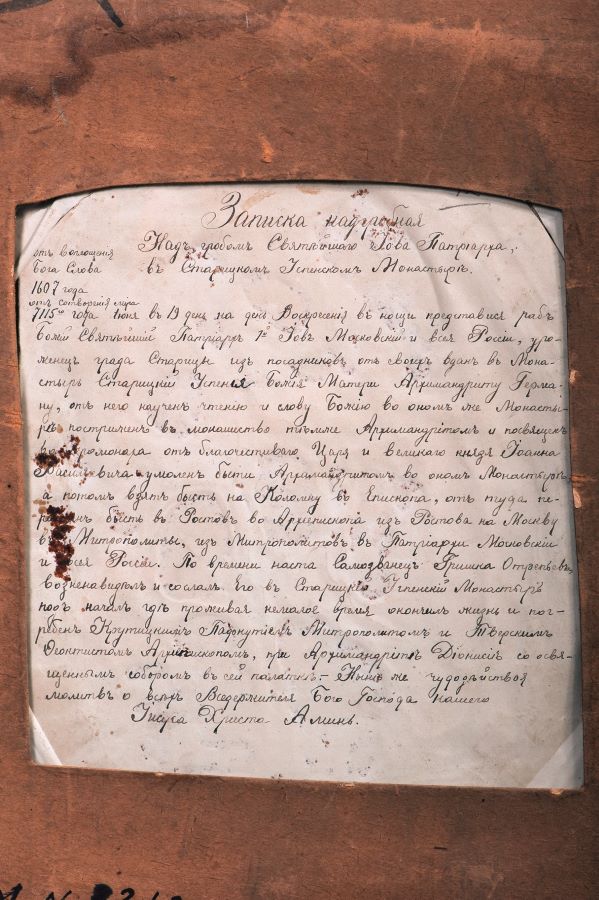 Записка надгробная
Надъ гробомъ Святѣйшаго Іова Патріарха,
отъ воплощенія
Бога Слова въ Старицкомъ Успенскомъ Монастырѣ.
1607 года
отъ сотворенія мира
7115го года Іюня въ 19 день на день Воскресенія въ нощи преставися рабъ
Божій Святѣйшій Патріархъ 1й Іовъ Московскій и всея Россіи, уро-
женецъ града Старицы изъ посадниковъ отъ своихъ вданъ въ Мона-
стырь Старицкій Успенья Божія Матери Архимандриту Герма-
ну, отъ него наученъ чтенію и слову Божію во ономъ же Монасты-
рѣ постриженъ въ монашество тѣмже Архимандритомъ и посвященъ
во Іеромонаха отъ благочестиваго Царя и великаго князя Іоанна
Васильевича умоленъ быти Архимандритомъ во ономъ Монастырѣ,
а потомъ взятъ бысть на Коломну въ Епископа, отъ туда пе-
бысть въ Ростовъ во Архіепископа изъ Ростова на Москву
въ Митрополиты, изъ Митрополитовъ въ Патріархи Московскіи
и всея Россіи. По времени наста Самозванецъ Гришка Отрепьевъ,
возненавидѣлъ и сослалъ Его въ Старицкій Успенскій Монастырь
подъ началъ гдѣ проживая немалое время окончилъ жизнь и пог-
ребенъ Крутицкимъ Пафнутіемъ Митрополитомъ и Тверскимъ
Феоктистомъ Архіепископомъ, при Архимандритѣ Діонисіи со освя-
щеннымъ соборомъ въ сей палаткѣ. – Нынѣ же чудодѣйствоя
молитвъ о всѣхъ Вседержителя Бого Господа нашего
Іисуса Христа Аминь.